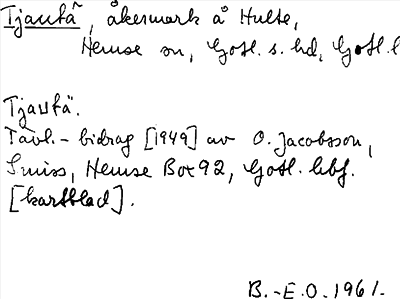 Tjautä, åkermark å Hulte,
Hemse sn, Gotl. s. hd, Gotl. l
Tjautä.
Tävl.-bidrag [1949] av O. Jacobsson,
Smiss, Hemse Box 92, Gotl. hbf.
[kartblad].
B.-E.O. 1961.